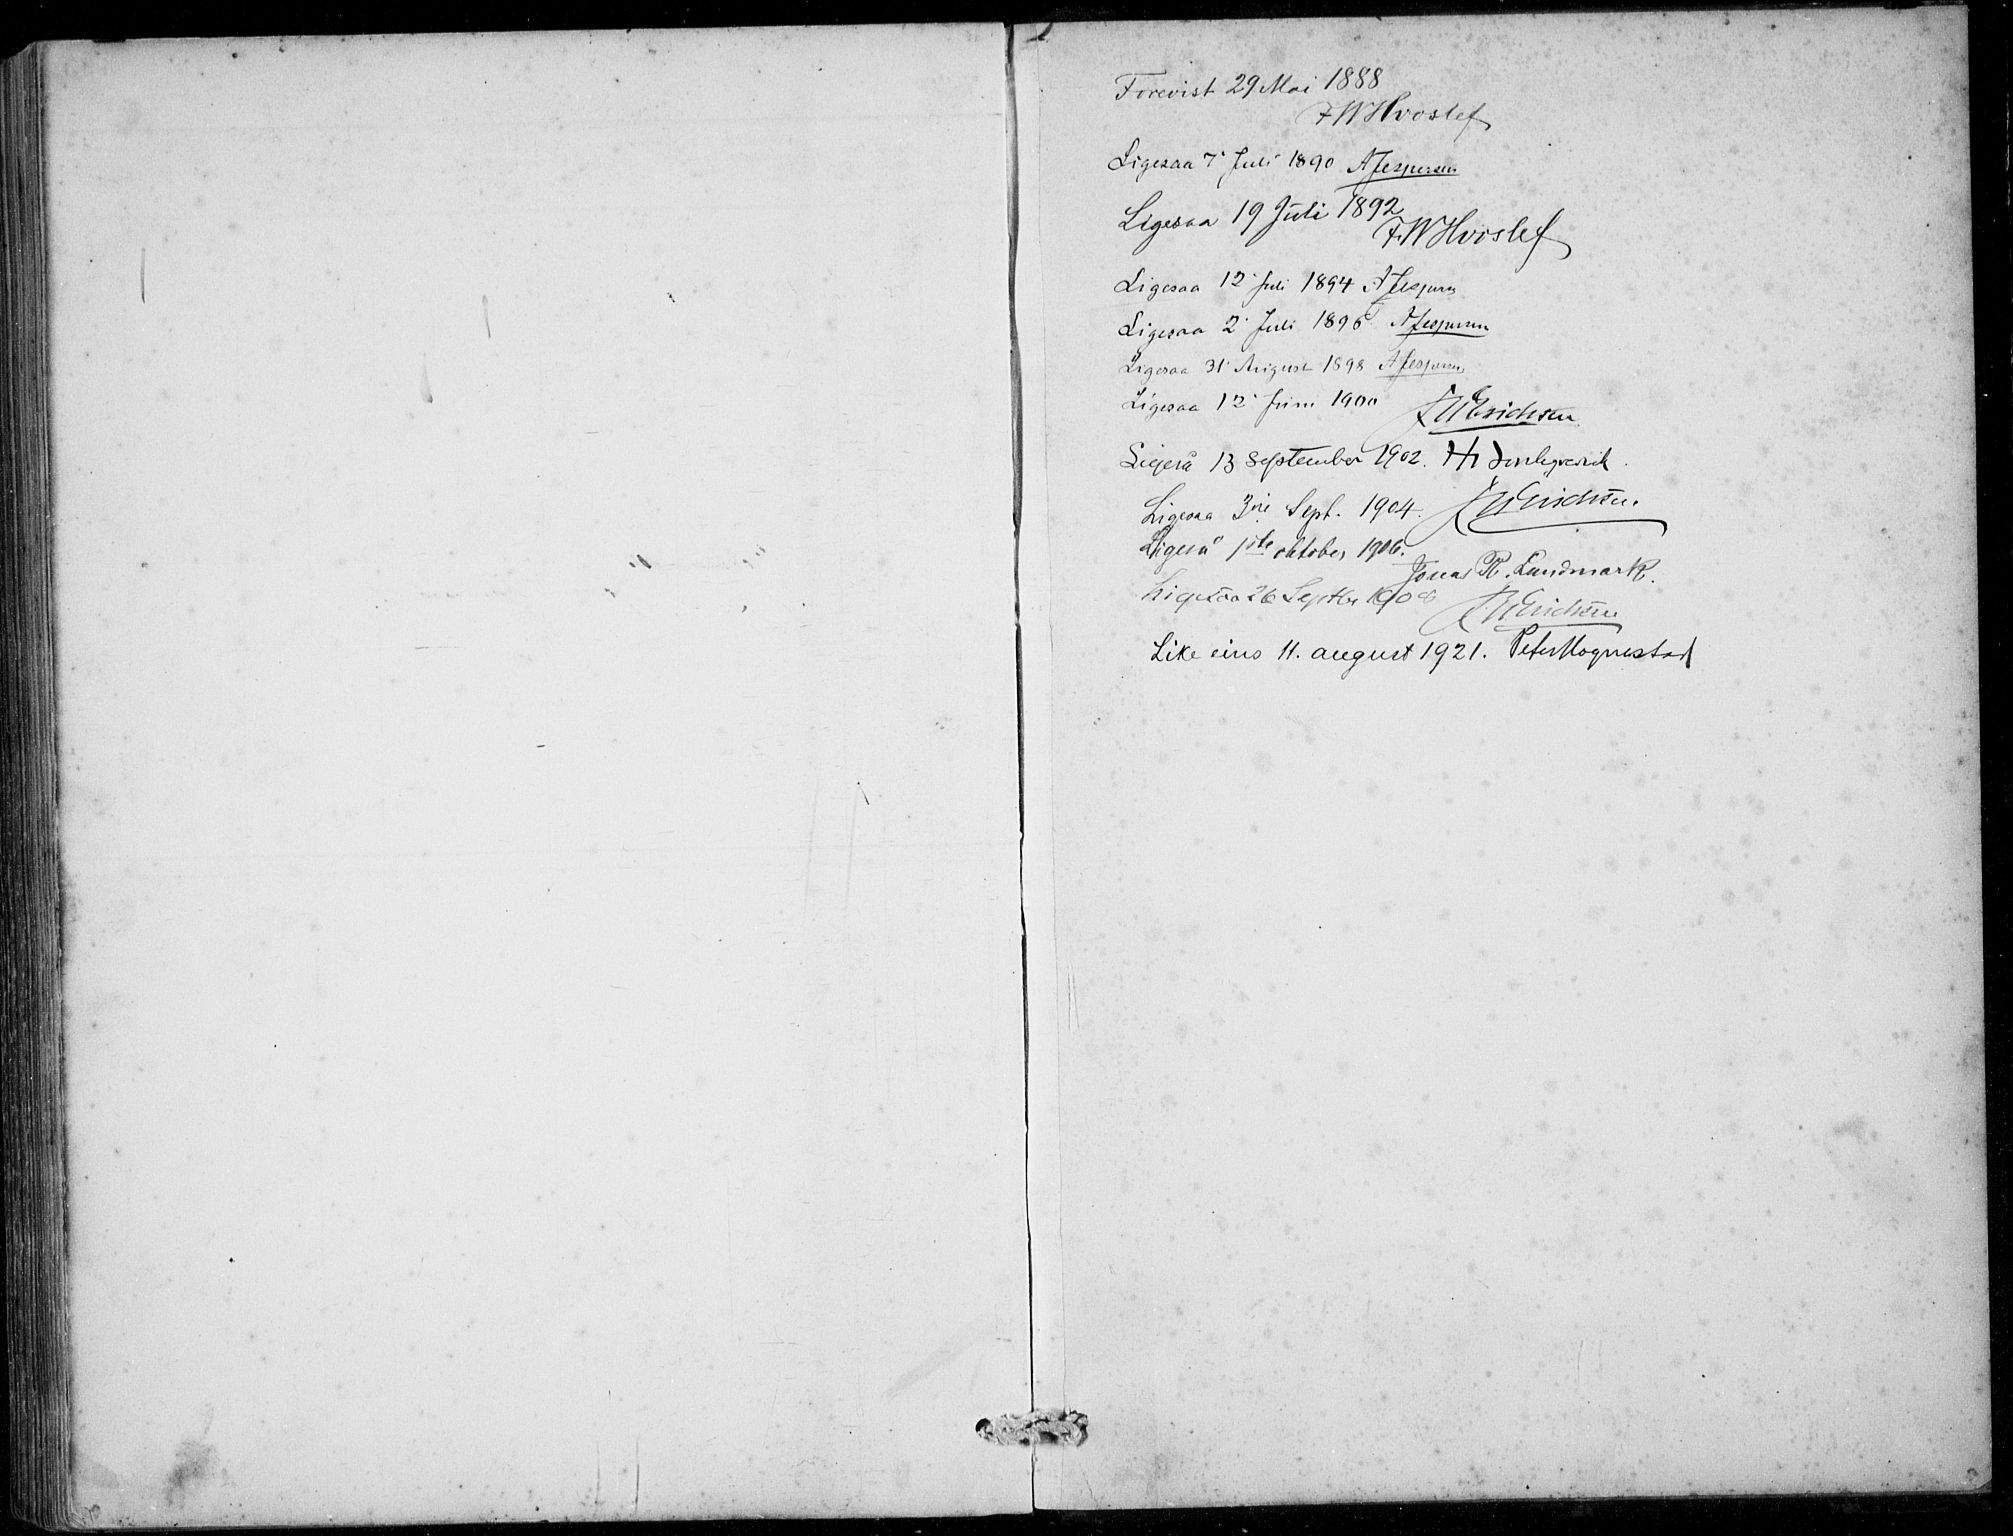 Forevist 29 Mai 1888
F W Hvoslef
Ligesaa 7' Juli 1890 A Jespersen
Ligesaa 19 Juli 1892
F. W Hvoslef
Ligesaa 12' Juli 1894 A Jespersen
Ligesaa 2' Juli 1896 A Jespersen
Ligesaa 31' August 1898 A Jespersen
Ligesaa 12' Juni 1900 Erichsen
Ligeså 13 September 1902.
Ligesaa 3die Sept. 1904. Erichsen.
Ligeså 1ste oktober 1906.
Jonas R. Landmark.
Ligesaa 26 Septbr 1908 Erichsen
Like eins 11. august 1921. Peter Hognestad